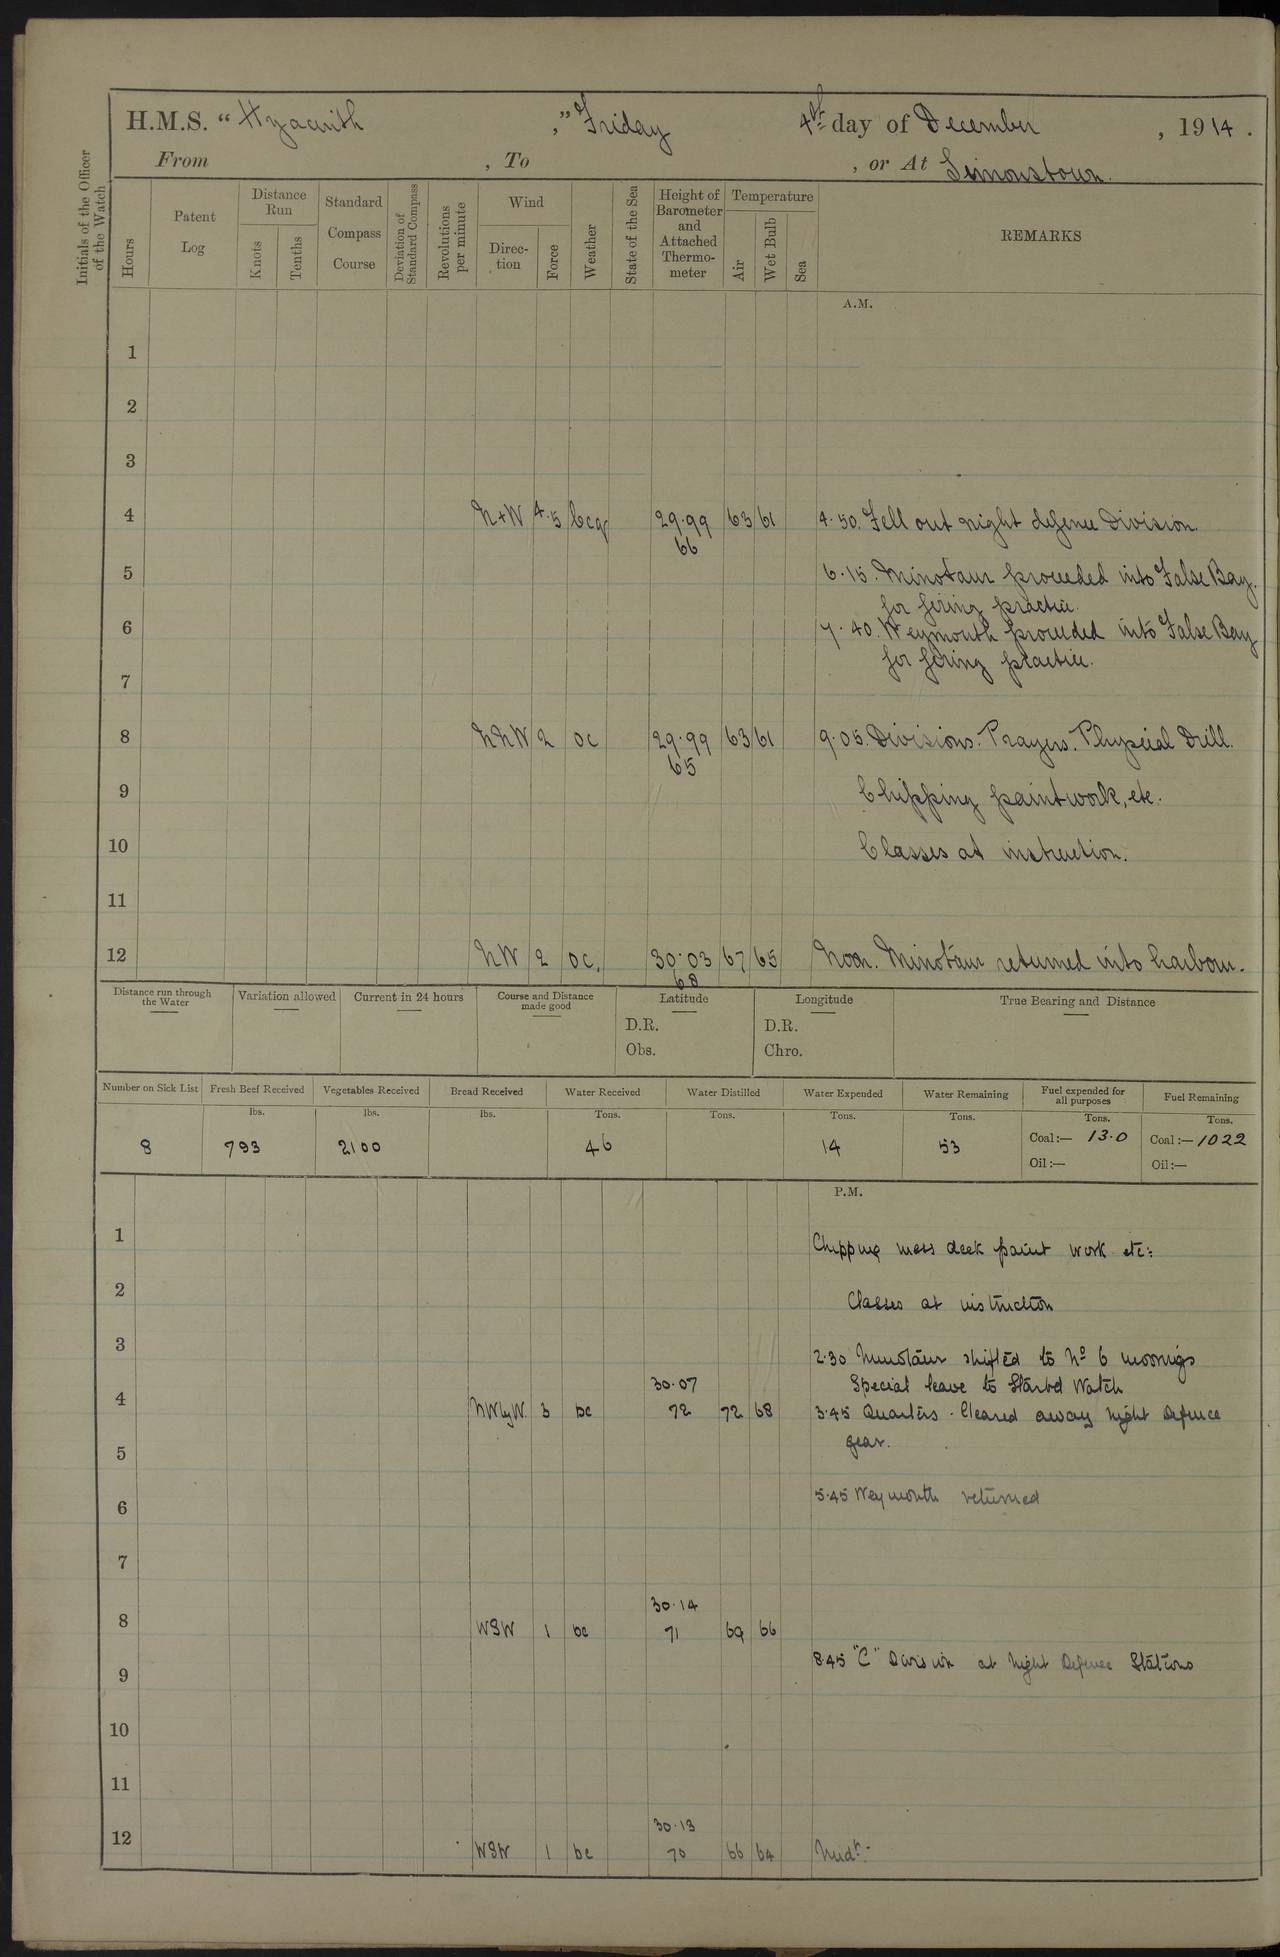 H.M.S. “ Hyacinth ,” Friday 4th day of December , 1914 .
From , To , or At Simonstown.
Initials of the Officer of the Watch
Hours
Patent Log
Distance Run
Knots
Tenths
Standard Compass Course
Deviation of Standard Compass
Revolutions per minute
Wind
Direc-tion
Force
Weather
State of the Sea
Height of Barometer and Attached Thermo-meter
Temperature
Air
Wet Bulb
Sea
REMARKS
A.M.
1
2
3
4 N+W 4.5 bcq 29.99 63 61 4.50. Fell out night defence Division.
66
5 6.15. Minotaur proceeded into False Bay.
for firing practice.
6 7.40. Weymouth proceeded into False Bay
for firing practice.
7
8 NNW 2 oc 29.99 63 61 9.05. Divisions. Prayers. Physical Drill.
65
9 Chipping paintwork, etc.
10 Classes at instruction.
11
12 NW 2 oc, 30.03 67 65 Noon. Minotaur returned into harbour.
68
Distance run through the Water
Variation allowed
Current in 24 hours
Course and Distance made good
Latitude
D.R.
Obs.
Longitude
D.R.
Chro.
True Bearing and Distance
Number on Sick List Fresh Beef Received Vegetables Received Bread Received Water Received Water Distilled Water Expended Water Remaining Fuel expended for all purposes Fuel Remaining
lbs. lbs. lbs. Tons. Tons. Tons. Tons. Tons. Tons.
8 793 2100 46 14 53 Coal:— 13.0 Coal:— 1022
Oil:— Oil:—
P.M.
1 Chipping mess deck paint work etc:
2 Classes at instruction
3 2.30 Minotaur shifted to No 6 moorings
30.07 Special leave to Starbd Watch
4 NWbyW. 3 bc 72 72 68 3.45 Quarters. Cleared away Night Defence
5 gear.
6 5.45 Weymouth returned
7
30.14
8 WSW 1 bc 71 69 66
9 8.45 "C" Division at Night Defence Stations
10
11
30.13
12 WSW 1 bc 70 66 64 Midt.